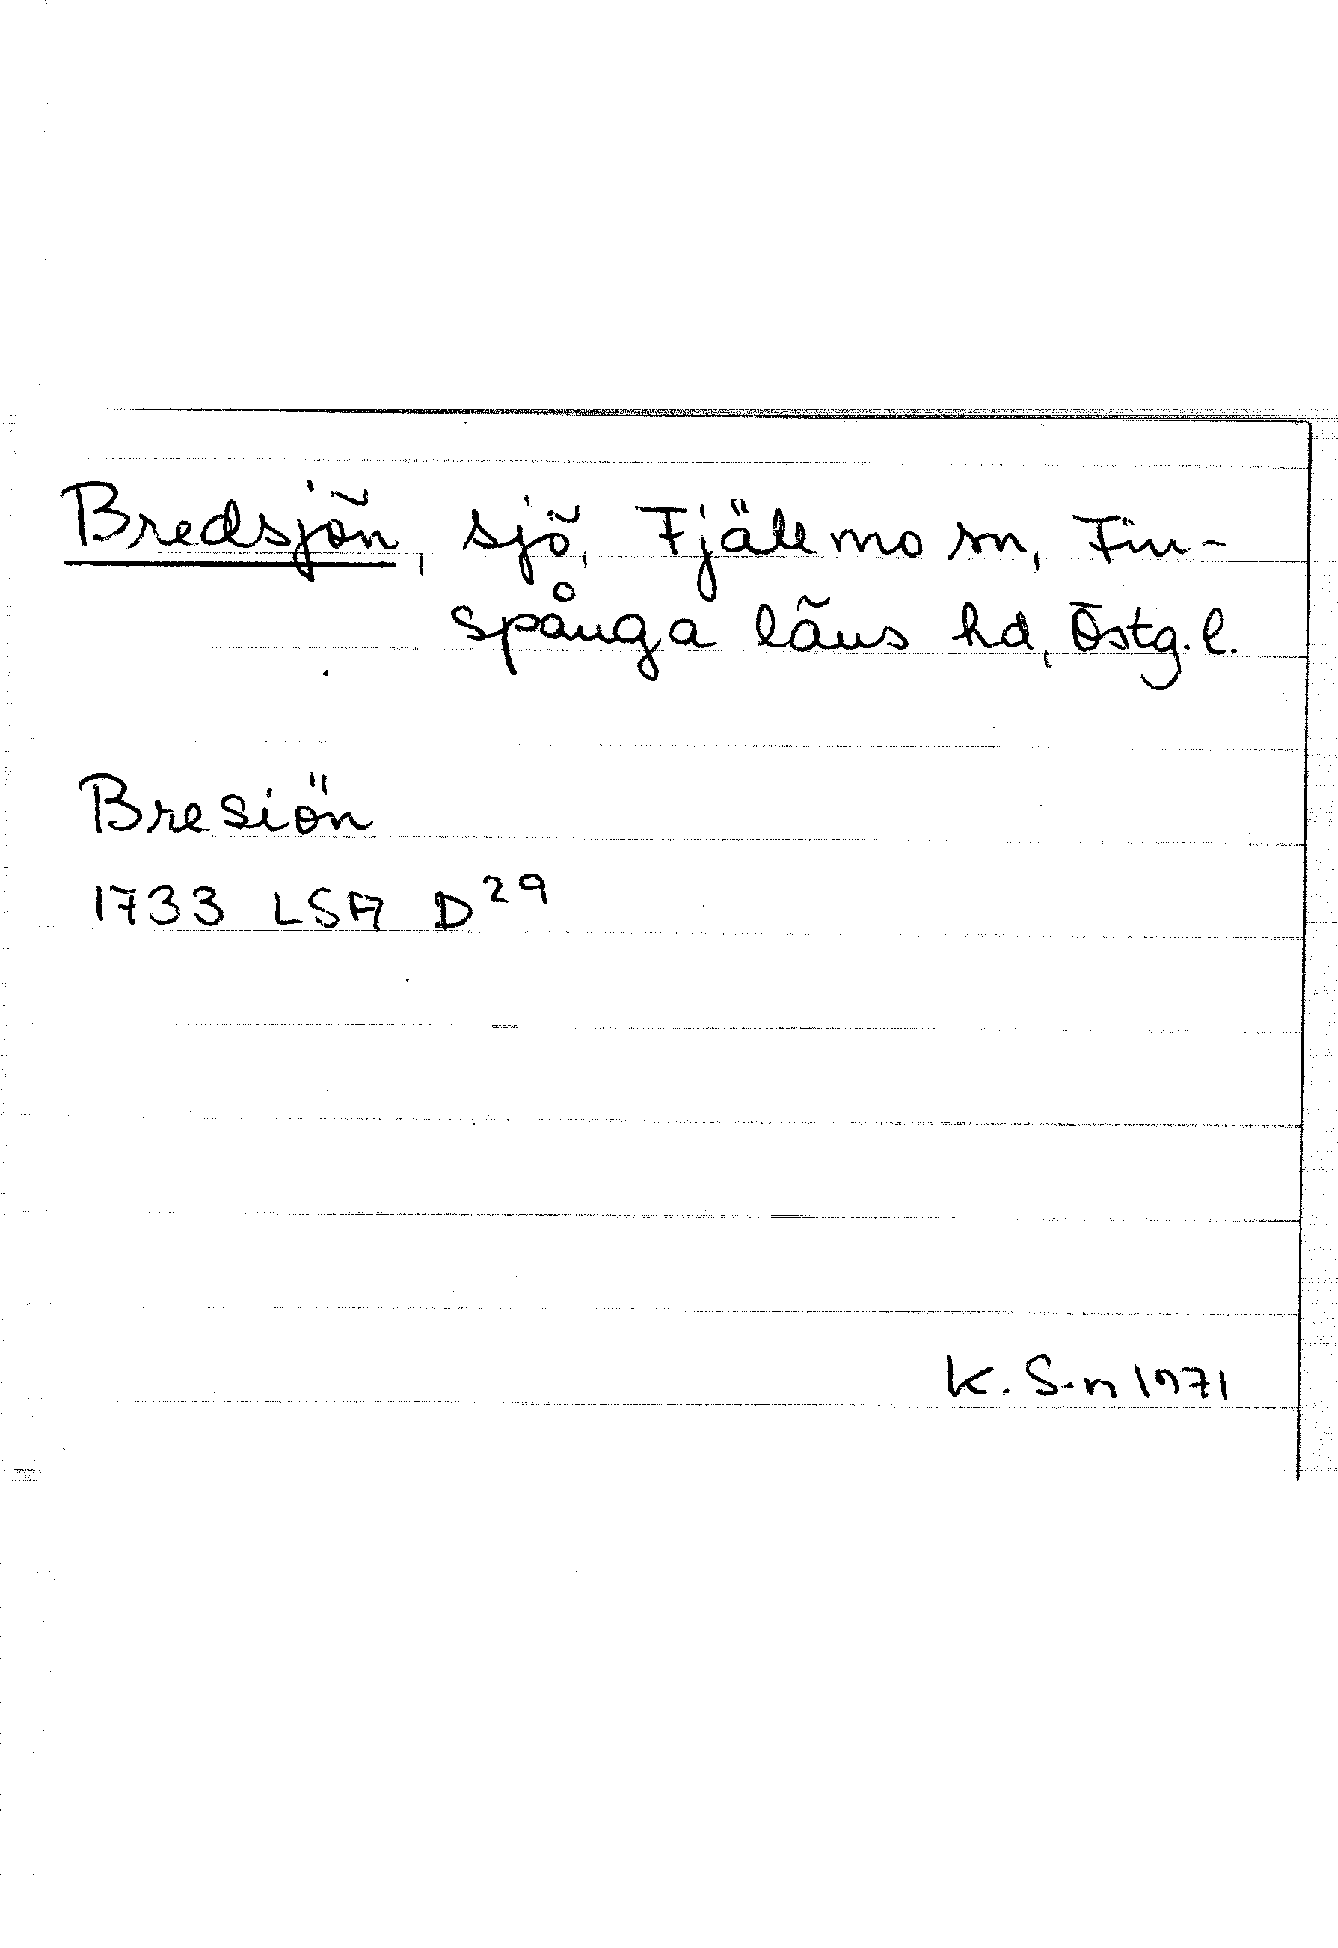 Bredsjön, sjö, Fjällmo sn, Fin-
spånga läns hd, Östg.l.
Bresiön
1733 LSA D29
K. S-n 1971